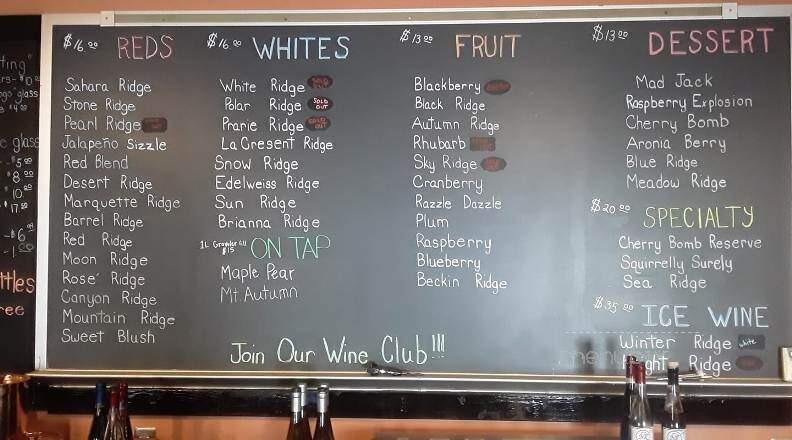 ting"
glass
$5.00
8.00
10.00
17.50
6.00
ttles
ree
$16.00 REDS
Sahara Ridge
Stone Ridge
Pearl Ridge
Jalapeño Sizzle
Red Blend
Desert Ridge
Marquette Ridge
Barrel Ridge
Red Ridge
Moon Ridge
Rose' Ridge
Canyon Ridge
Mountain Ridge
Sweet Blush
$16.00 WHITES
White Ridge SOLD OUT
Polar Ridge SOLD OUT
Prarie Ridge SOLD OUT
La Cresent Ridge
Snow Ridge
Edelweiss Ridge
Sun Ridge
Brianna Ridge
1L Growler fill
$15
ON TAP
Maple Pear
Mt. Autumn
$13.00 FRUIT
Blackberry
Black Ridge
Autumn Ridge
Rhubarb
Sky Ridge
Cranberry
Razzle Dazzle
Plum
Raspberry
Blueberry
Beckin Ridge
$13.00 DESSERT
Mad Jack
Raspberry Explosion
Cherry Bomb
Aronia Berry
Blue Ridge
Meadow Ridge
$20.00 SPECIALTY
Cherry Bomb Reserve
Squirrelly Surely
Sea Ridge
$35.00 ICE WINE
Winter Ridge white
Ridge
Join Our Wine Club!!!